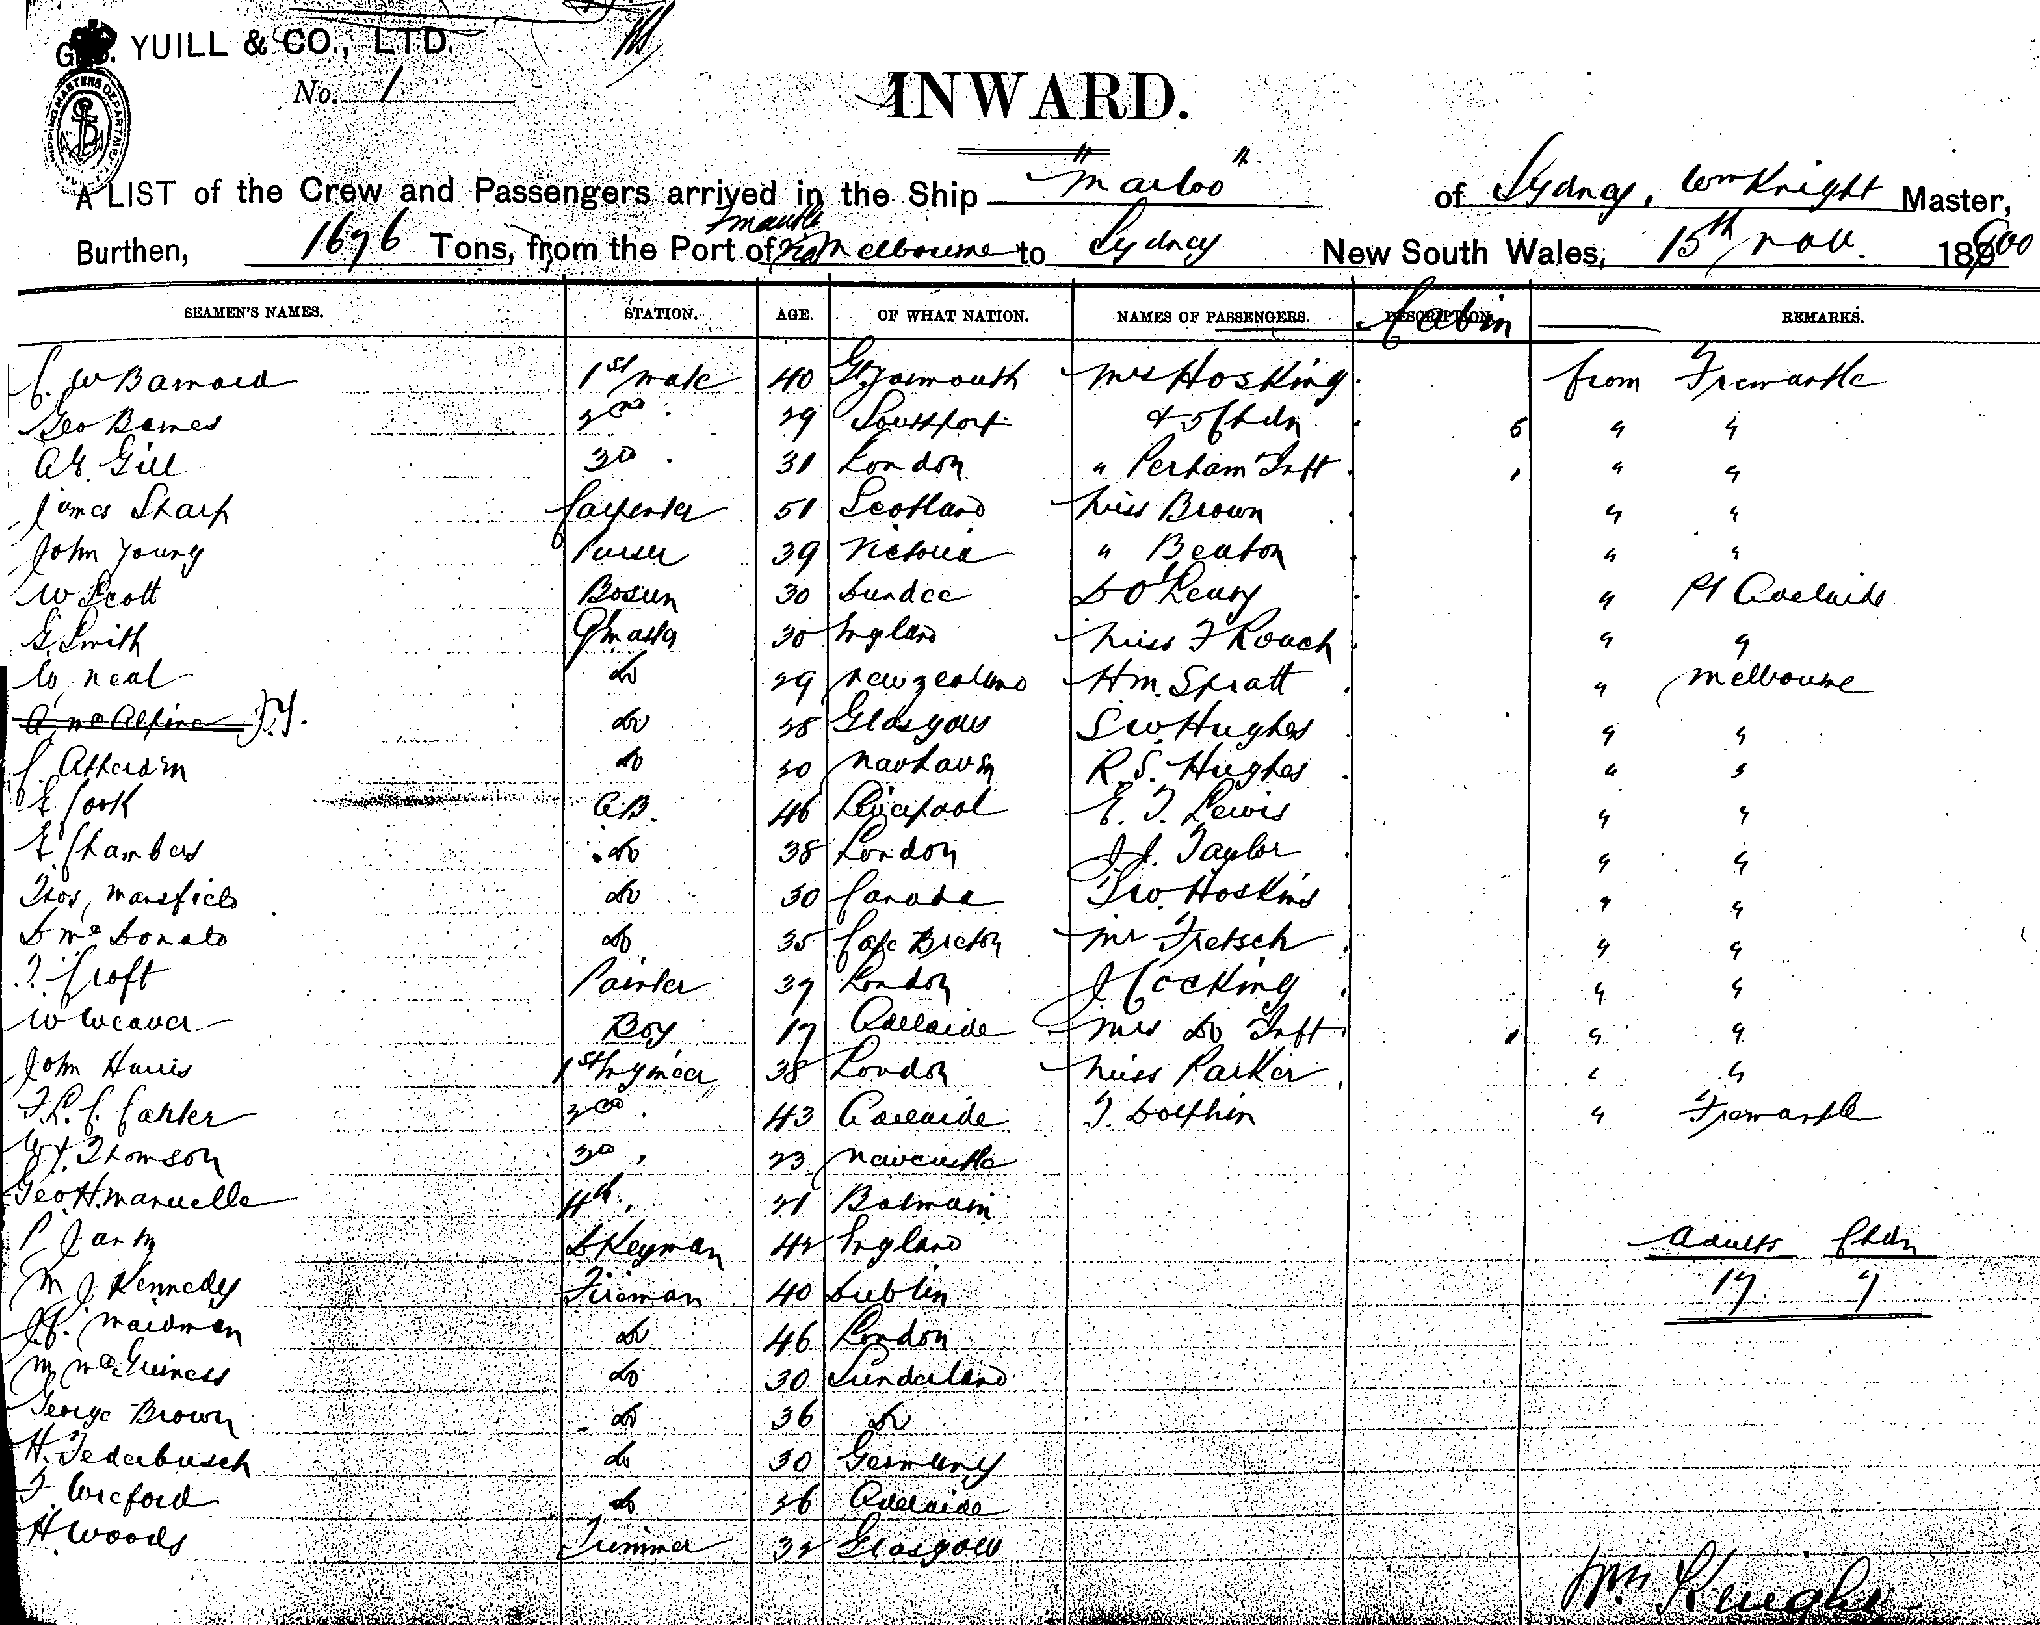 G. S. YUILL & CO., LTD.
No. 1
INWARD.
A LIST of the Crew and Passengers arrived in the Ship "Marloo" of Sydney, Wm Knight Master,
Burthen, 1676 Tons, from the Port of Fmantle via Melbourne to Sydney New South Wales, 15th Nov. 1900
SEAMEN'S NAMES. STATION. AGE. OF WHAT NATION. NAMES OF PASSENGERS. DESCRIPTION. Cabin REMARKS.
C. W Barnard 1st Mate 40 Gt Yarmouth Mrs Hosking from Fremantle
Geo Barnes 2nd . 29 Southport & 5 Chdn 5 " "
A E. Gill 3d . 31 London " Perham & Inft 1 " "
James Sharp Carpenter 51 Scotland Miss Brown " "
John Young Purser 39 Victoria " Beaton " "
W Scott Bosun 30 Dundee D O'Leary " Pt Adelaide
G Smith Qmaster 30 England Miss F Roach " "
W Neal Do 29 New Zealand H M. Spratt " Melbourne
A McAlpine Do 28 Glasgow S W. Hughes " "
C. Do 30 R. S. Hughes " "
E Cook A.B. 46 Liverpool E. T. Lewis " "
E. Chambers Do 38 London J J. Taylor " "
Thos, Mansfield Do 30 Canada F W. Hoskins " "
D McDonald Do 35 Cape Breton Mr Fretsch " "
T. Croft Painter 39 London J Cocking " "
W Weaver Boy 17 Adelaide Mrs Do & Inft 1 " "
John Harris 1st Engineer 38 London Miss Parker " "
F. L. C. Carter 2nd . 43 Adelaide T. Dolphin " Fremantle
Thomson 3d . 23 Newcastle
Geo H. Manuelle 4th . 21 Balmain
P Dkeyman 42 England
M J Kennedy Fireman 40 Dublin
Maidman Do 46 London
M McGuiness Do 30 Sunderland
George Brown Do 36 Do
H. Tederbusch Do 30 Germany
F. Wreford Do 26 Adelaide
H. Woods Trimmer 32 Glasgow
Adults Chdn
17 7
Wm Knight